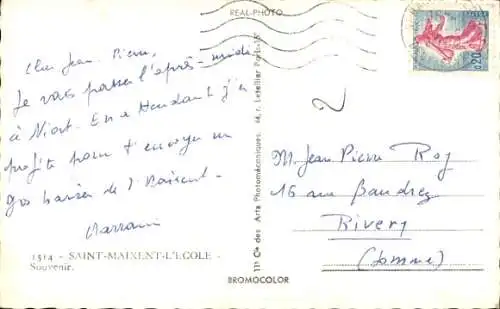 REAL-PHOTO
Cher Jean Pierre,
Je vais passer l'après-midi
à Niort. En attendant j'en
profite pour t'envoyer un
gros baiser de
1514 - SAINT-MAIXENT-L'ECOLE -
Souvenir.
11 Cie des Arts Photomécaniques, 44, r. Letellier Paris-15
BROMOCOLOR
0,20
2
M. Jean Pierre Roy
16 rue Baudrez
Rivery
(Somme)